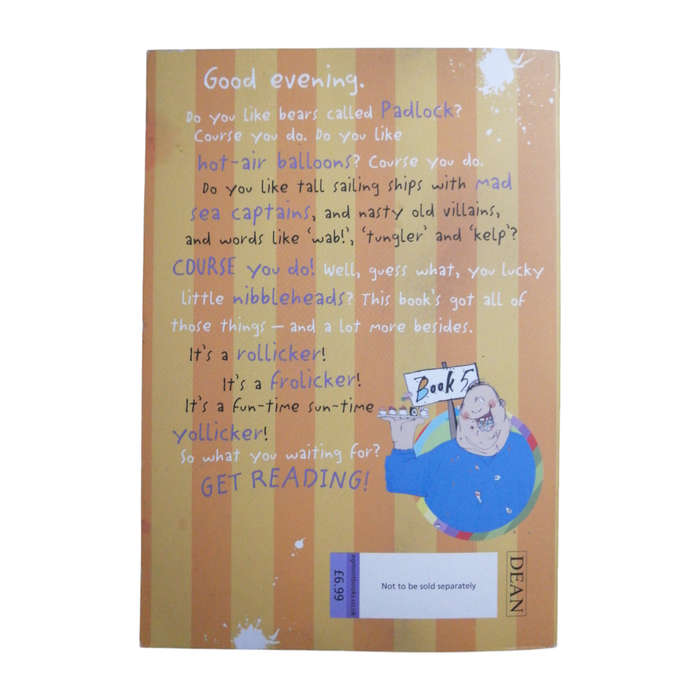 Good evening.
Do you like bears called Padlock?
Course you do. Do you like
hot-air balloons? Course you do.
Do you like tall sailing ships with mad
sea captains, and nasty old villains,
and words like ‘wab!’, ‘tungler’ and ‘kelp’?
COURSE you do! Well, guess what, you lucky
little nibbleheads? This book's got all of
those things – and a lot more besides.
It's a rollicker!
It's a frolicker!
It's a fun-time sun-time
yollicker!
So what you waiting for?
GET READING!
Book 5
£6.99
egmontbooks.co.uk
Not to be sold separately
DEAN